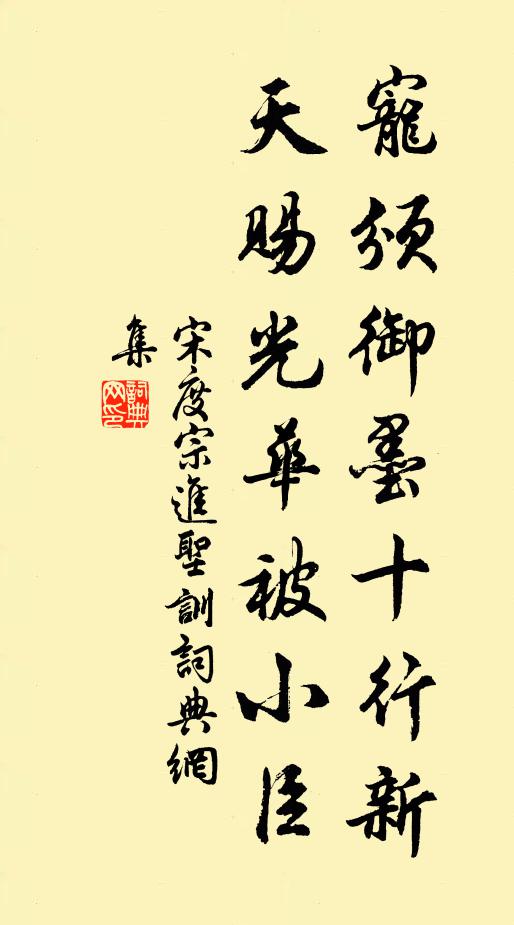 寵頒御墨十行新
天賜光華被小臣
宋度宗進聖訓詞典網
集
詞典
网印